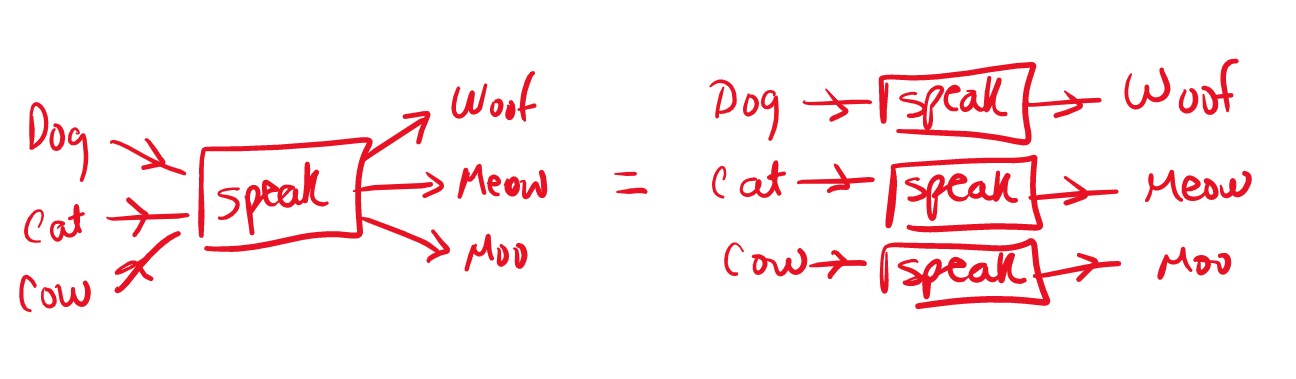 Dog
Cat
Cow
speak
Woof
Meow
Moo
=
Dog speak Woof
Cat speak Meow
Cow speak Moo